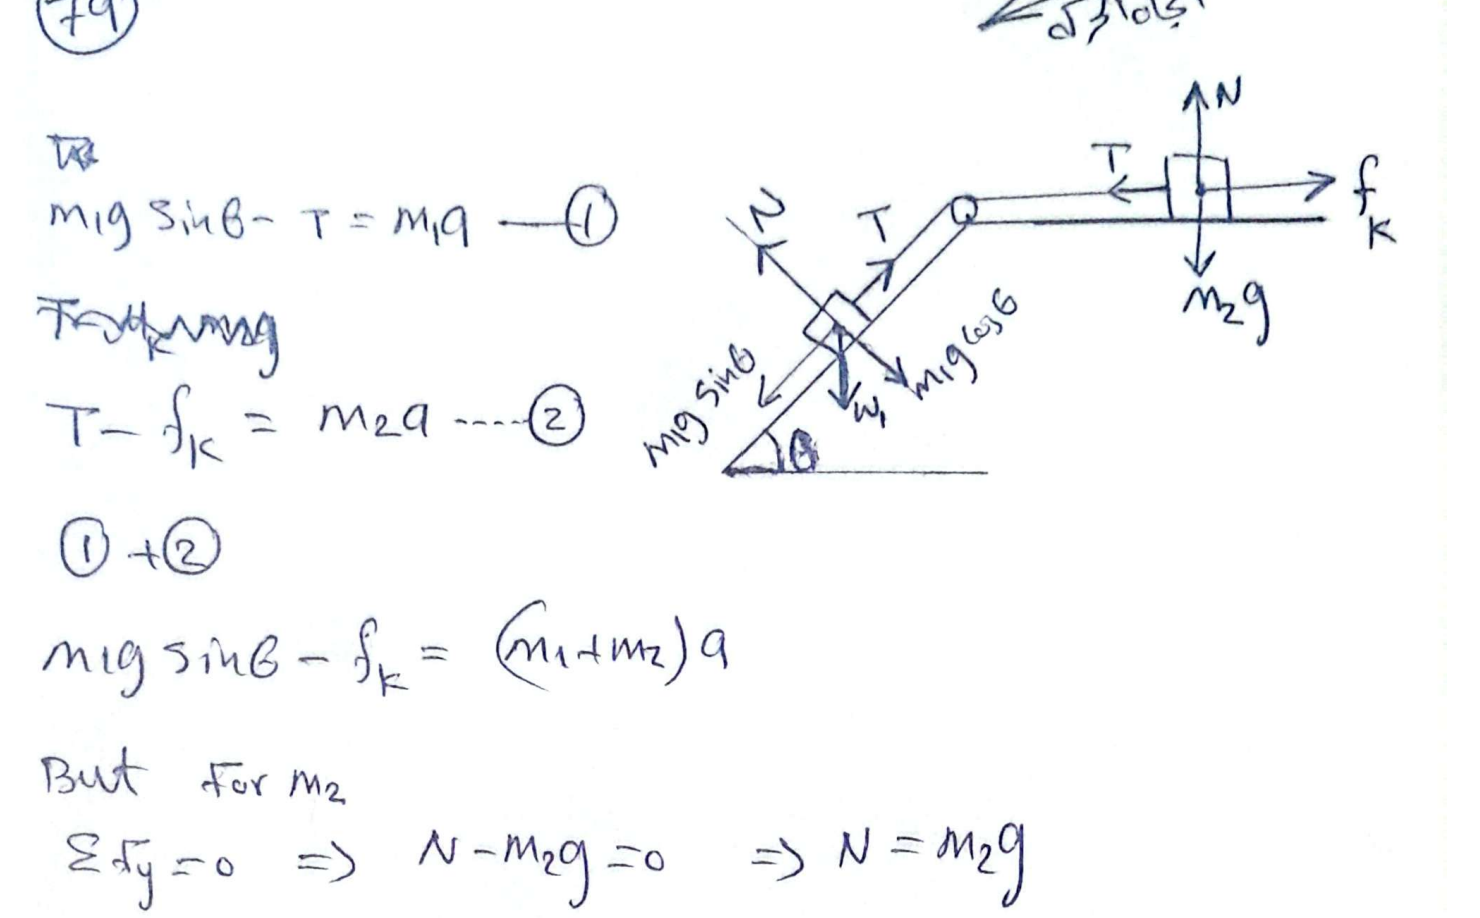 79
m1g sinθ - T = m1a —①
T - fk = m2a ----②
① + ②
m1g sinθ - fk = (m1+m2)a
But For m2
ΣFy = 0 => N - m2g = 0 => N = m2g
N
T
fk
m2g
N
T
m1g sinθ
W1
m1g cosθ
θ